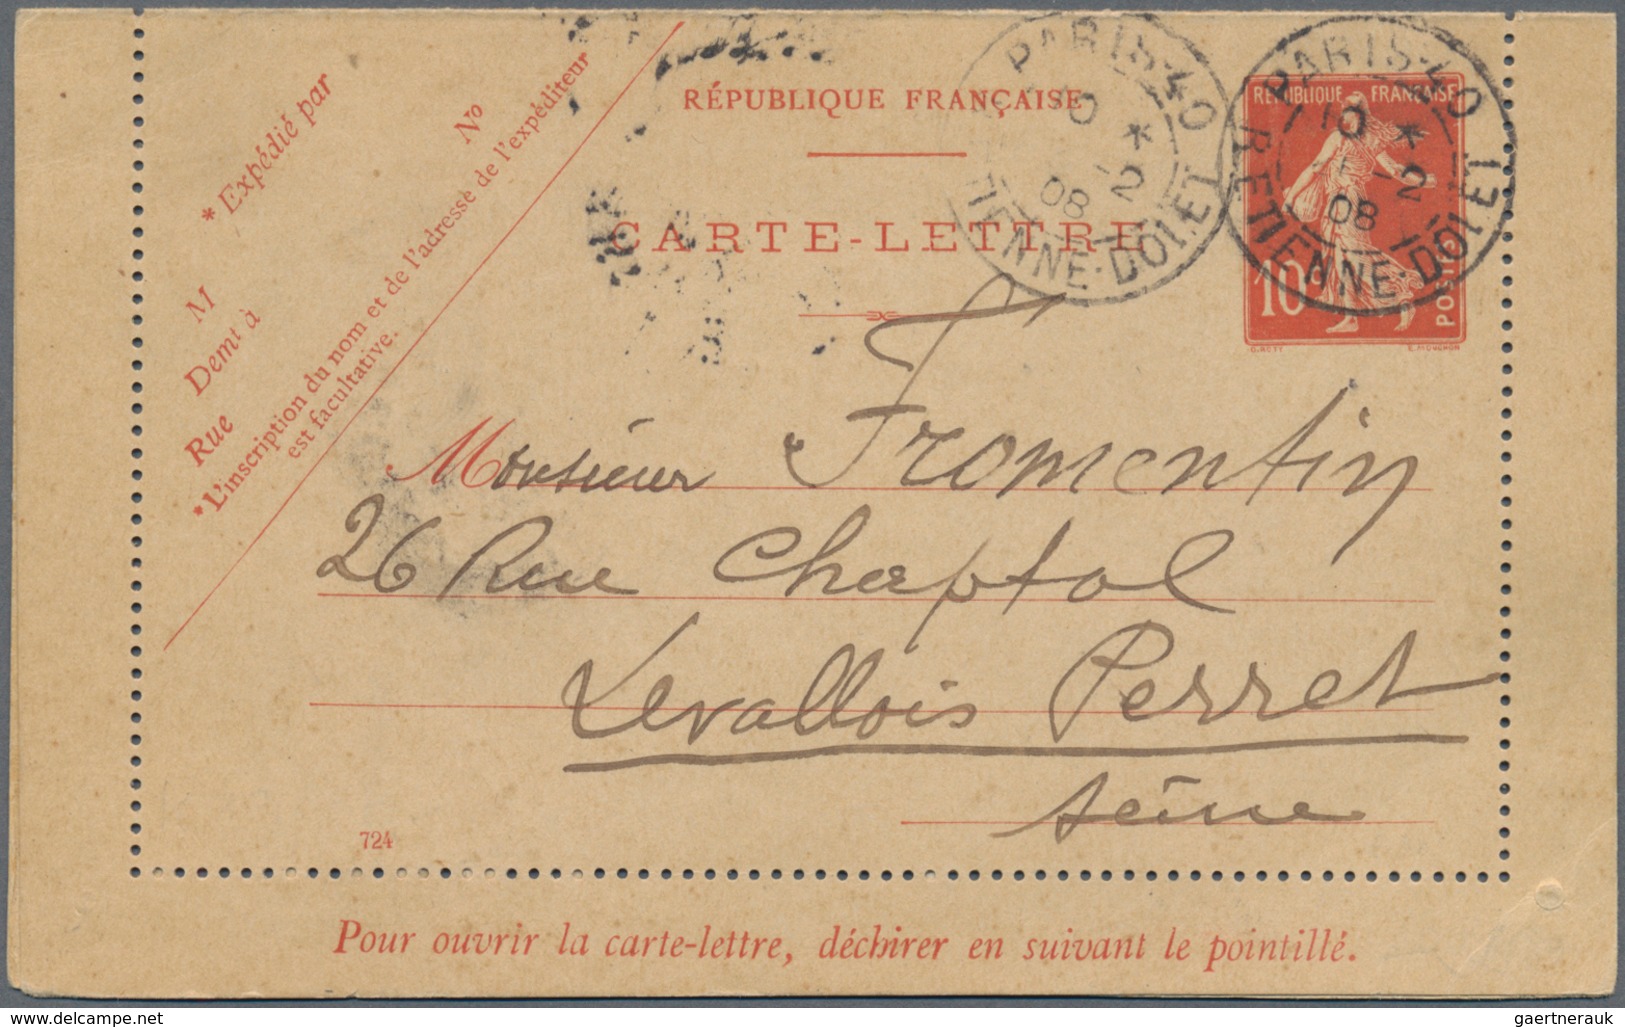 * Expédié par
Nº
M
Demt à
Rue
*L'inscription du nom et de l'adresse de l'expéditeur
est facultative.
RÉPUBLIQUE FRANÇAISE
CARTE-LETTRE
PARIS-40
10 *
-2
08
TIENNE-DOLET
PARIS-40
10 *
-2
08
R. ETIENNE-DOLET
REPUBLIQUE FRANÇAISE
10c
POSTES
O. ROTY E. MOUCHON
Monsieur Fromentin
26 Rue Chaptal
Levallois Perret
Seine
724
Pour ouvrir la carte-lettre, déchirer en suivant le pointillé.
gaertnerauk @ www.delcampe.net